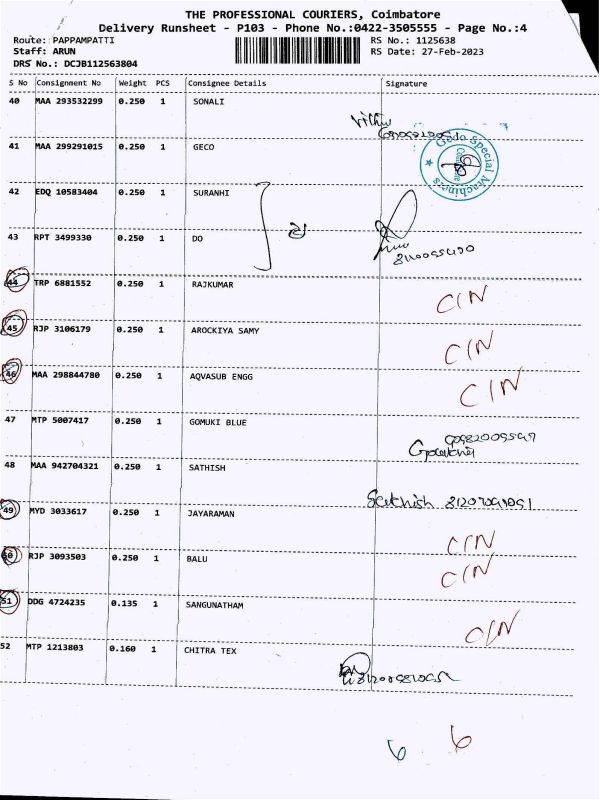 THE PROFESSIONAL COURIERS, Coimbatore
Delivery Runsheet - P103 - Phone No.:0422-3505555 - Page No.:4
Route: PAPPAMPATTI RS No.: 1125638
Staff: ARUN RS Date: 27-Feb-2023
DRS No.: DCJB112563804
S No Consignment No Weight PCS Consignee Details Signature
40 MAA 293532299 0.250 1 SONALI
41 MAA 299291015 0.250 1 GECO
Gedo Special Machines
42 EDQ 10583404 0.250 1 SURANHI
43 RPT 3499330 0.250 1 DO
44 TRP 6881552 0.250 1 RAJKUMAR C/N
45 RJP 3106179 0.250 1 AROCKIYA SAMY C/N
46 MAA 298844780 0.250 1 AQVASUB ENGG C/N
47 MTP 5007417 0.250 1 GOMUKI BLUE
48 MAA 942704321 0.250 1 SATHISH
Sathish
49 MYD 3033617 0.250 1 JAYARAMAN C/N
50 RJP 3093503 0.250 1 BALU C/N
51 DDG 4724235 0.135 1 SANGUNATHAM C/N
52 MTP 1213803 0.160 1 CHITRA TEX
6 6